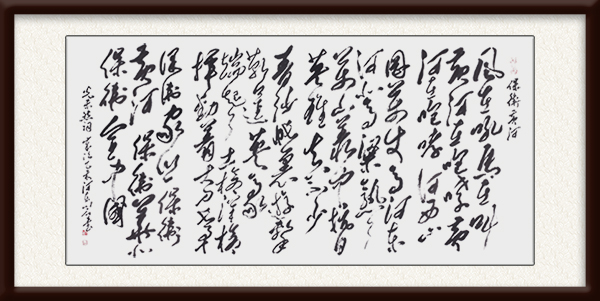 保衛黃河
風在吼馬在叫
黃河在咆哮黃
河在咆哮河西山
岡萬丈高河東
河北高粱熟了
萬山叢中抗日
英雄真不少
青紗帳裏游擊
健兒逞英豪
端起了土槍洋槍
揮動着大刀長矛
保衛家鄉保衛
黃河保衛華北
保衛全中國
光未然詞